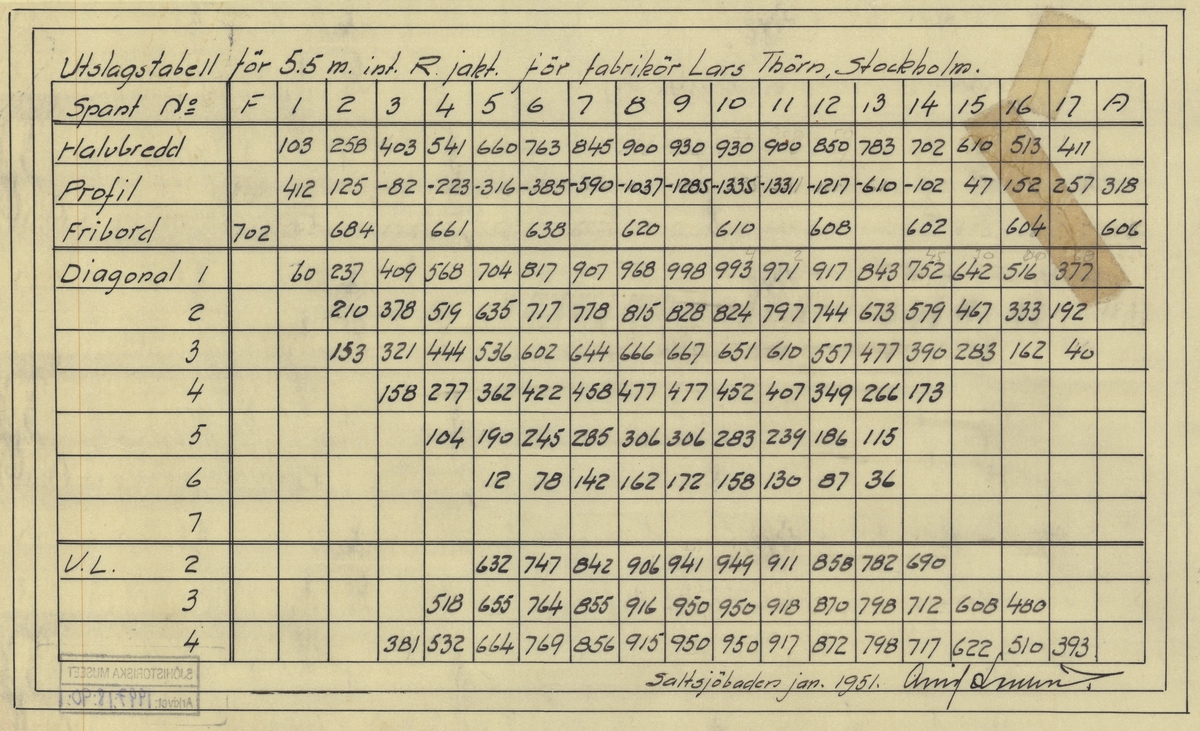 Utslagstabell för 5.5 m. int. R. jakt. för fabrikör Lars Thörn, Stockholm.
Spant No F 1 2 3 4 5 6 7 8 9 10 11 12 13 14 15 16 17 A
Halvbredd 103 258 403 541 660 763 845 900 930 930 900 850 783 702 610 513 411
Profil 412 125 -82 -223 -316 -385 -590 -1037 -1285 -1335 -1331 -1217 -610 -102 47 152 257 318
Fribord 702 684 661 638 620 610 608 602 604 606
Diagonal 1 60 237 409 568 704 817 907 968 998 993 971 917 843 752 642 516 377
2 210 378 519 635 717 778 815 828 824 797 744 673 579 467 333 192
3 153 321 444 536 602 644 666 667 651 610 557 477 390 283 162 40
4 158 277 362 422 458 477 477 452 407 349 266 173
5 104 190 245 285 306 306 283 239 186 115
6 12 78 142 162 172 158 130 87 36
7
V.L. 2 632 747 842 906 941 949 911 858 782 690
3 518 655 764 855 916 950 950 918 870 798 712 608 480
4 381 532 664 769 856 915 950 950 917 872 798 717 622 510 393
Saltsjöbaden jan. 1951.
SJÖHISTORISKA MUSEET